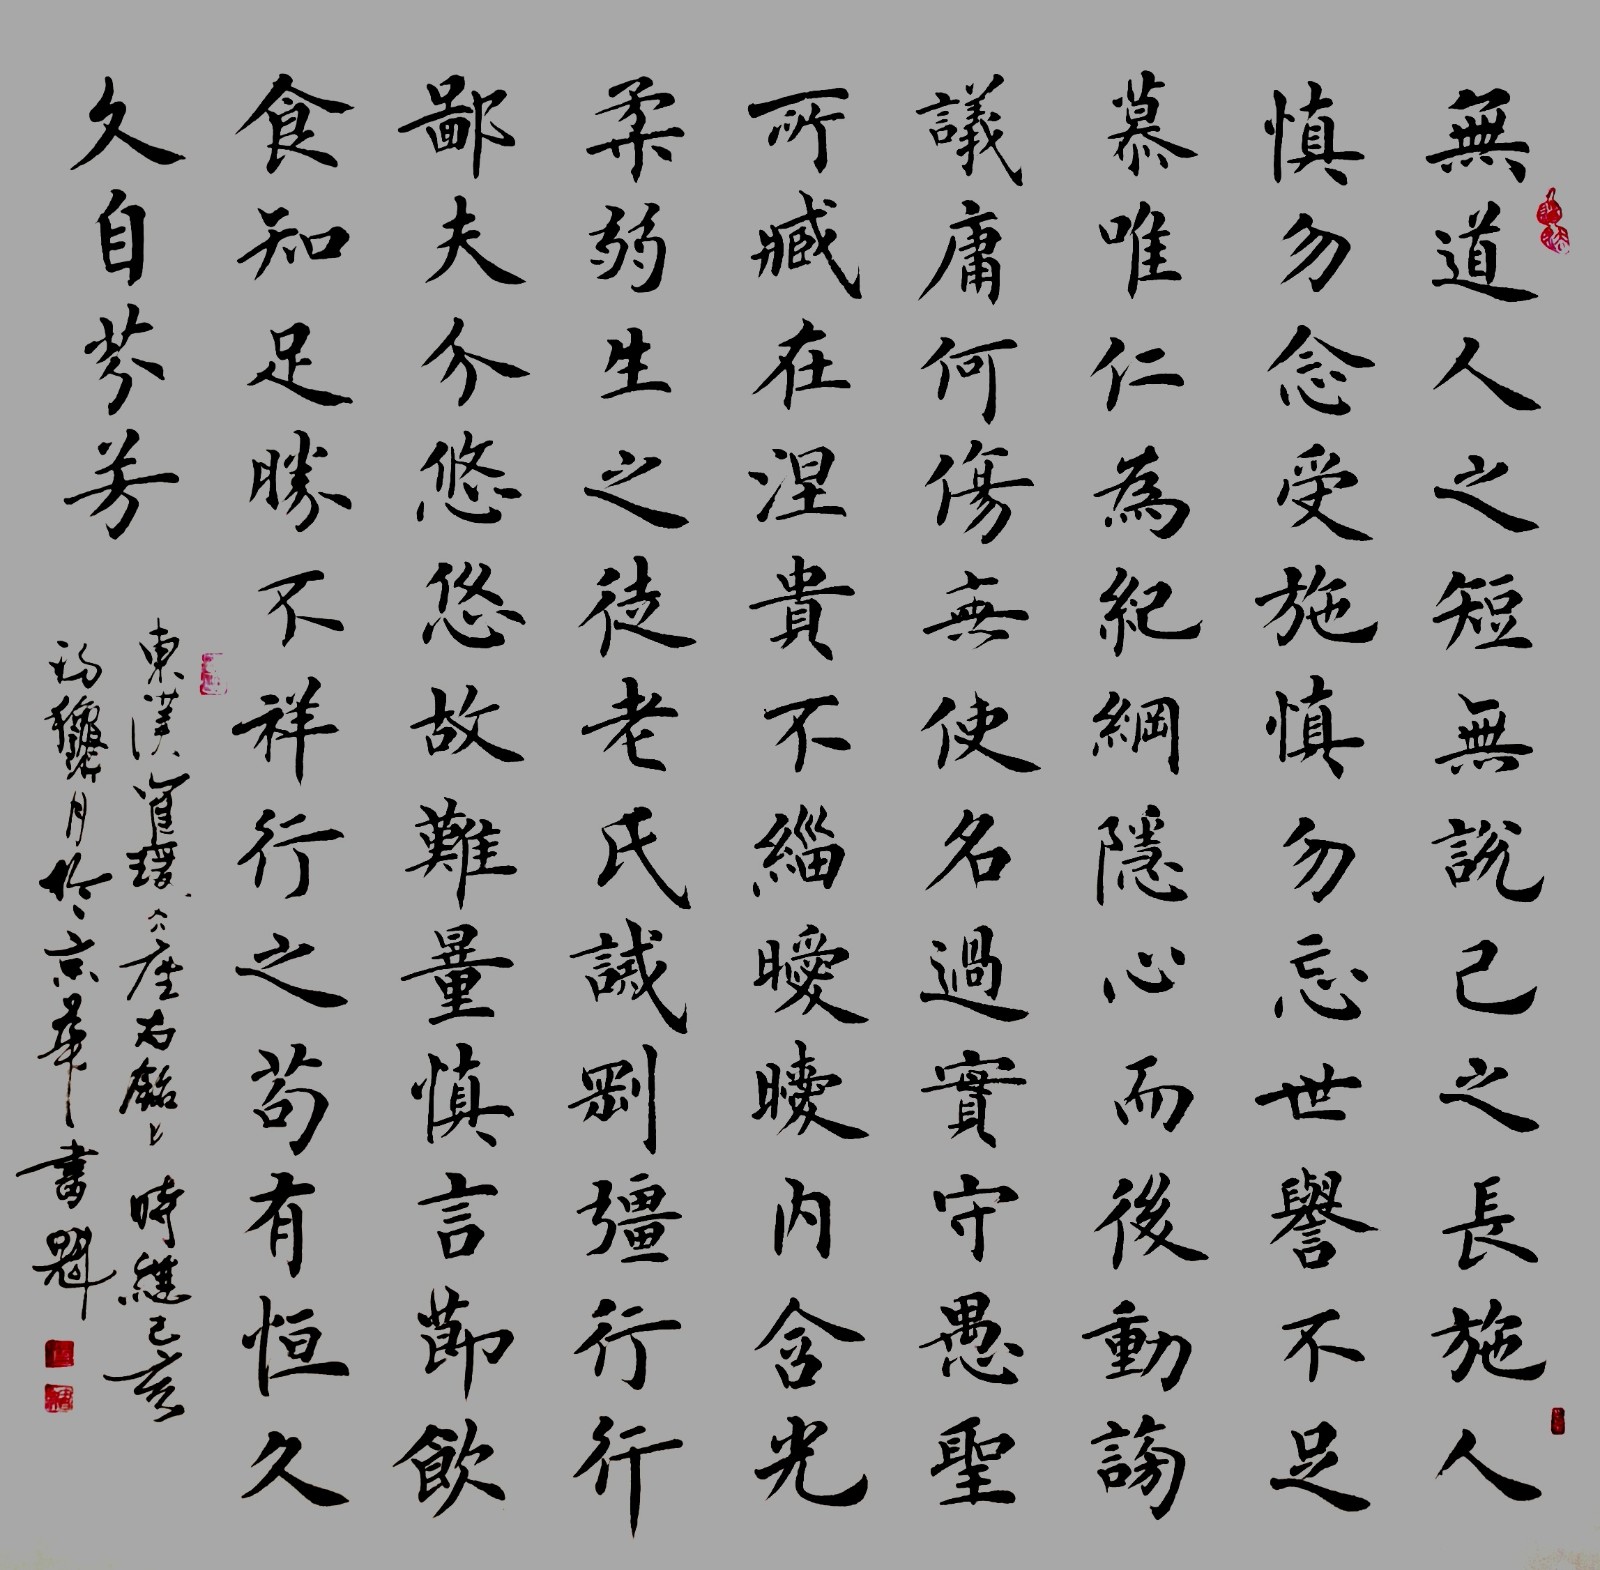 無道人之短無說己之長施人
慎勿念受施慎勿忘世譽不足
慕唯仁為紀綱隱心而後動謗
議庸何傷無使名過實守愚聖
所臧在涅貴不緇曖曖內含光
柔弱生之徒老氏誡剛彊行行
鄙夫介悠悠故難量慎言節飲
食知足勝不祥行之苟有恒久
久自芬芳
東漢崔瑗座右銘時繼己亥
月於京華書